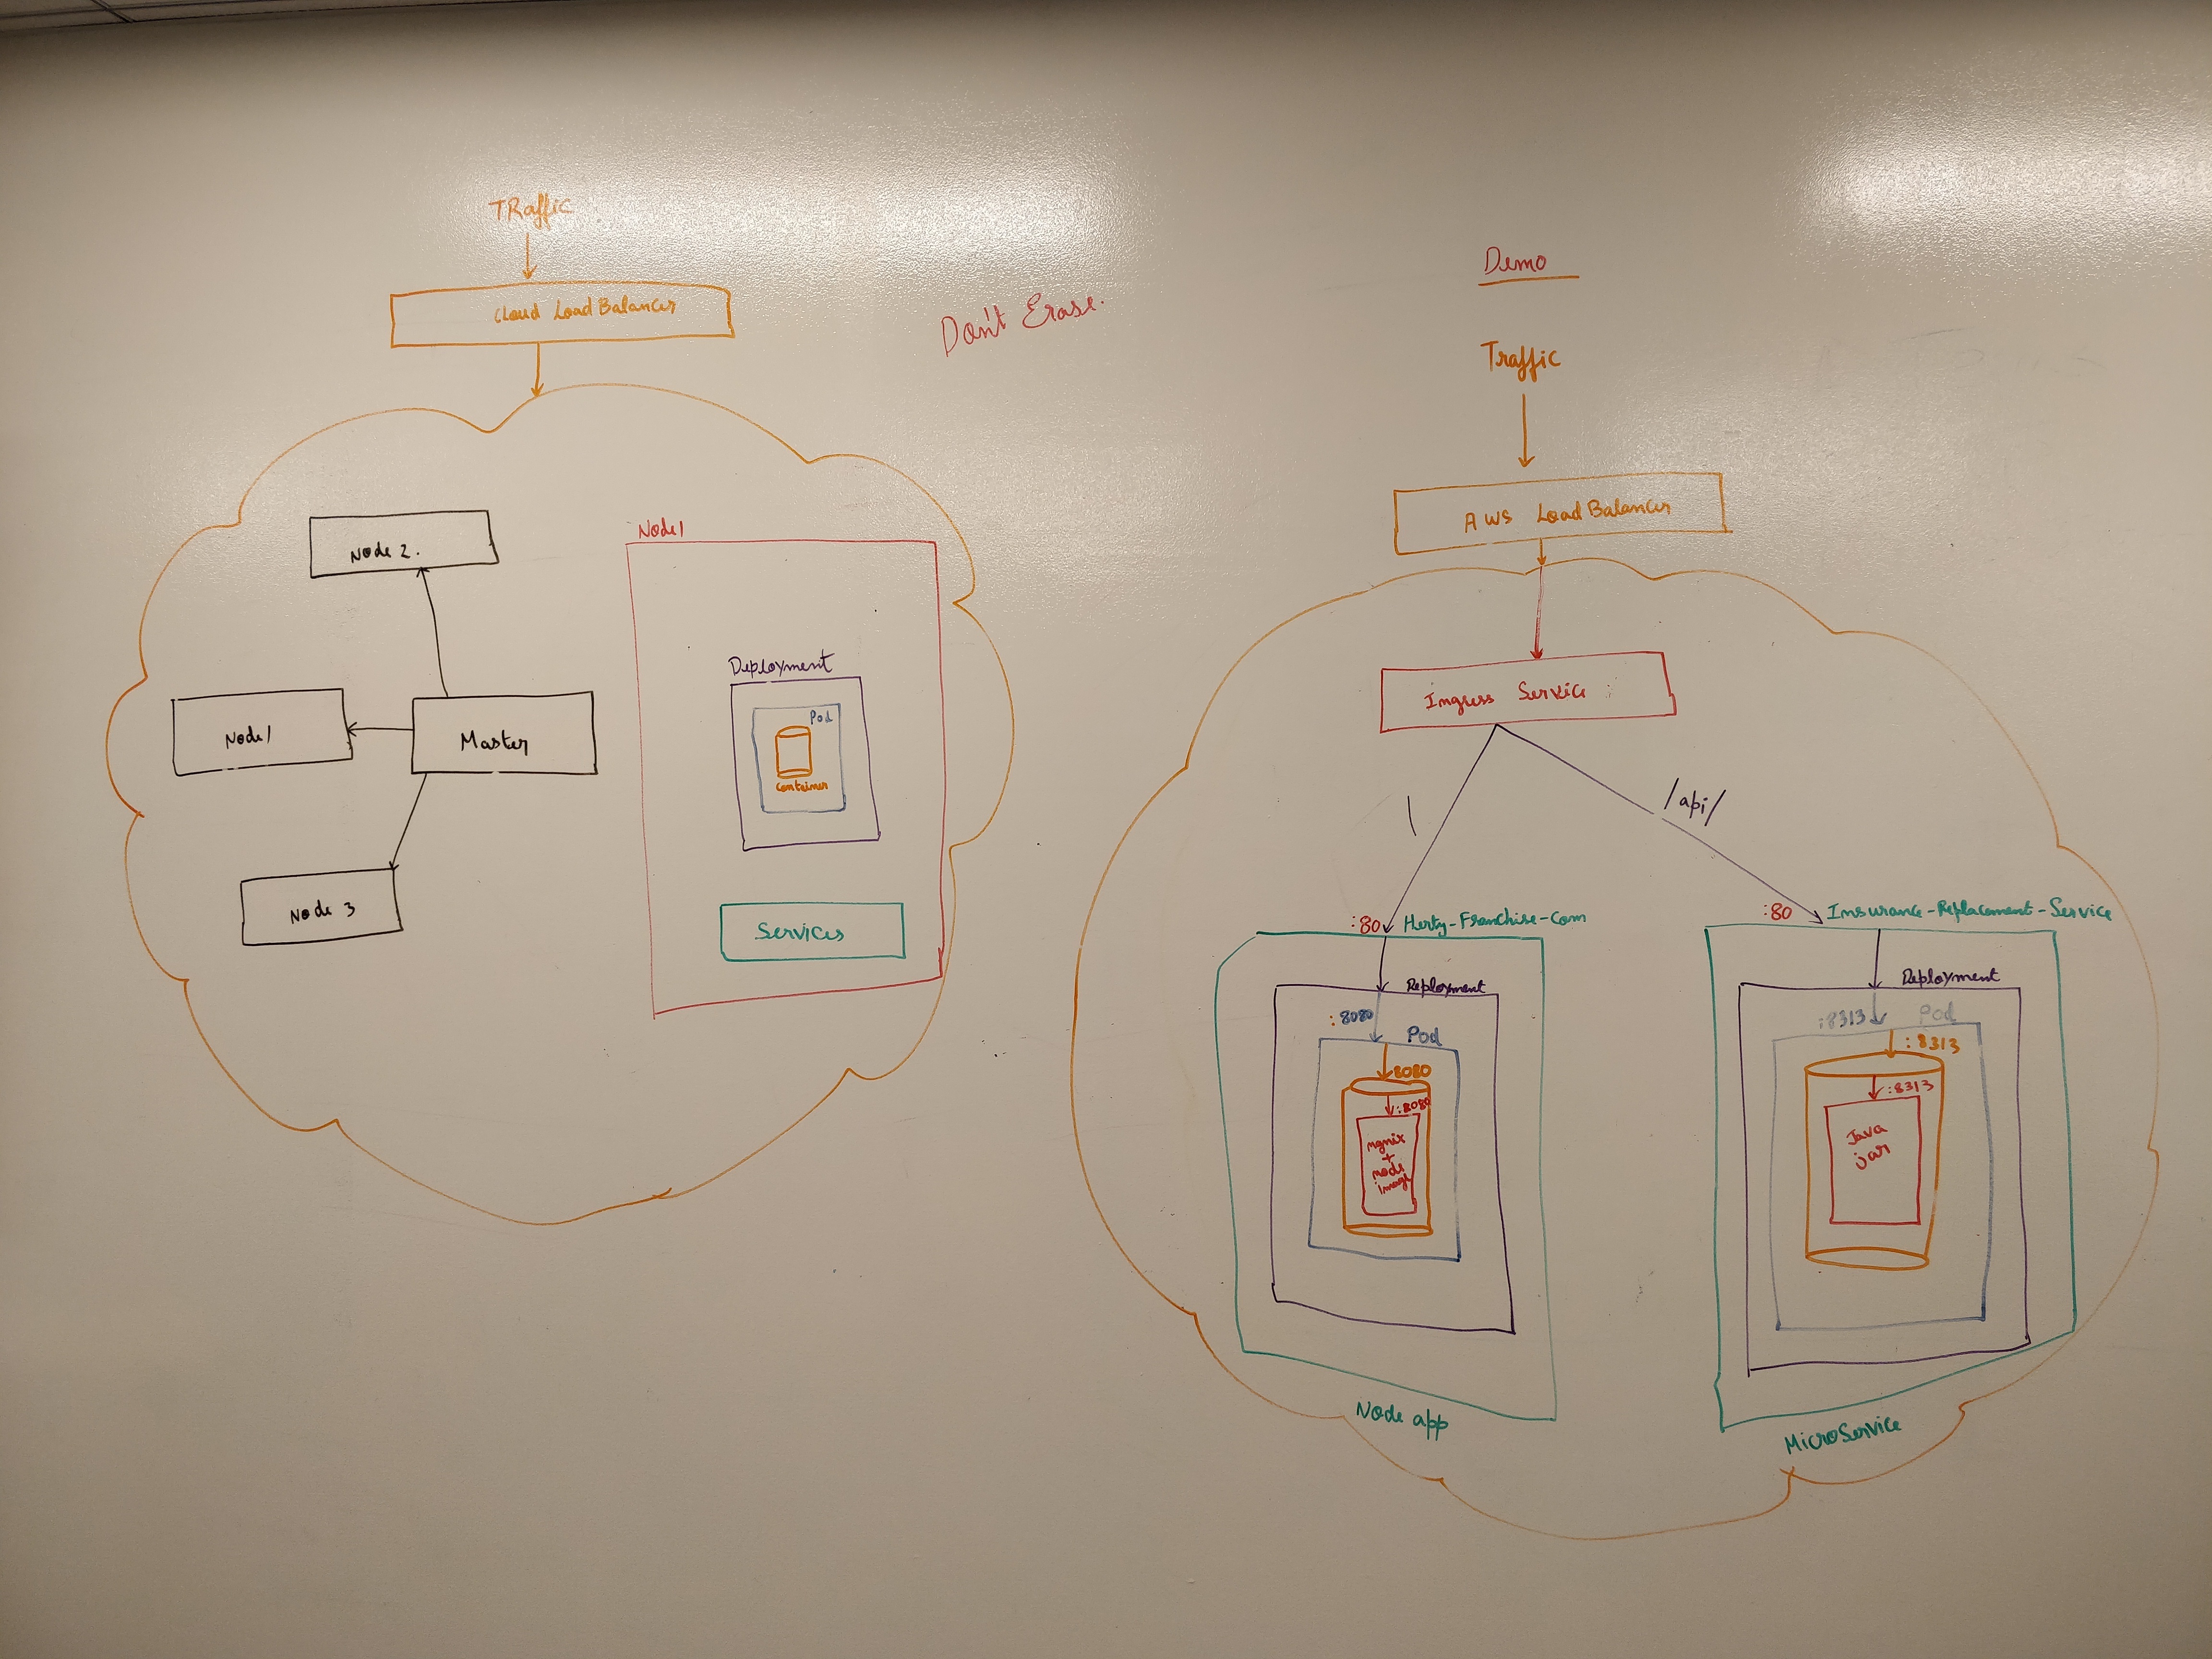 TRaffic
Cloud Load Balancer
Don't Erase.
Node 2.
Node 1
Master
Node 3
Node 1
Deployment
Pod
Container
Services
Demo
Traffic
AWS Load Balancer
Ingress Service
\
/api/
:80
Herty-Franchise-Com
Deployment
:8080
Pod
8080
:8080
ngnix
+
node
image
Node app
:80
Insurance-Replacement-Service
Deployment
:8313
Pod
:8313
:8313
Java
jar
MicroService